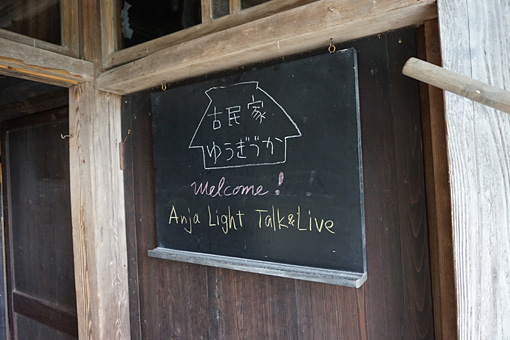 古民家
ゆうぎづか
Welcome!
Anja Light Talk&Live